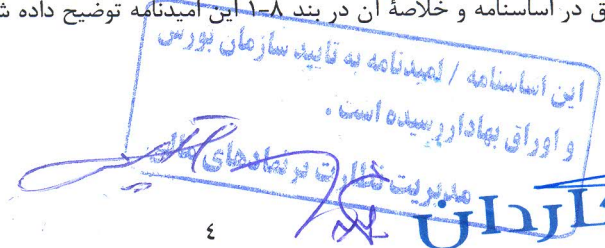 ق در اساسنامه و خلاصهٔ آن در بند ۸-۱ این امیدنامه توضیح داده ش
این اساسنامه / امیدنامه به تایید سازمان بورس
و اوراق بهادار رسیده است .
مدیریت نظارت بر نهادهای مالی
۴